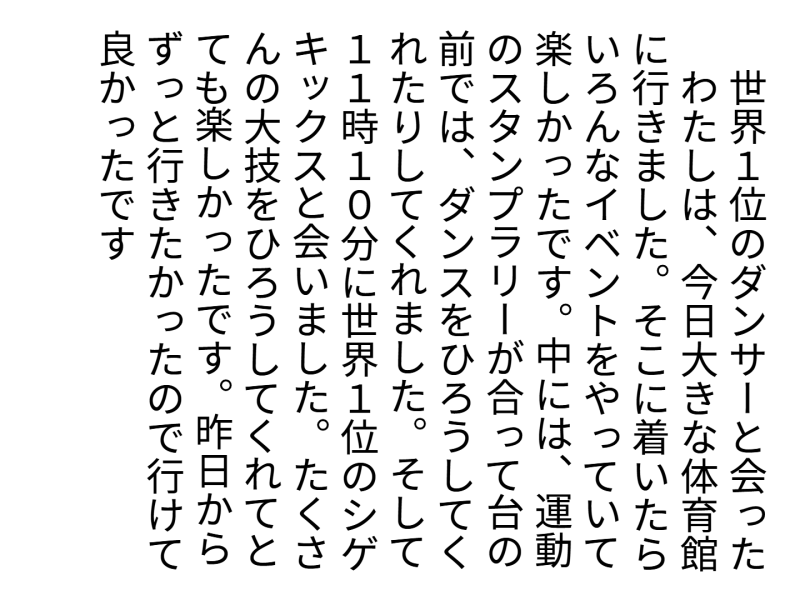 世界１位のダンサーと会った
わたしは、今日大きな体育館
に行きました。そこに着いたら
いろんなイベントをやっていて
楽しかったです。中には、運動
のスタンプラリーが合って台の
前では、ダンスをひろうしてく
れたりしてくれました。そして
１１時１０分に世界１位のシゲ
キックスと会いました。たくさ
んの大技をひろうしてくれてと
ても楽しかったです。昨日から
ずっと行きたかったので行けて
良かったです